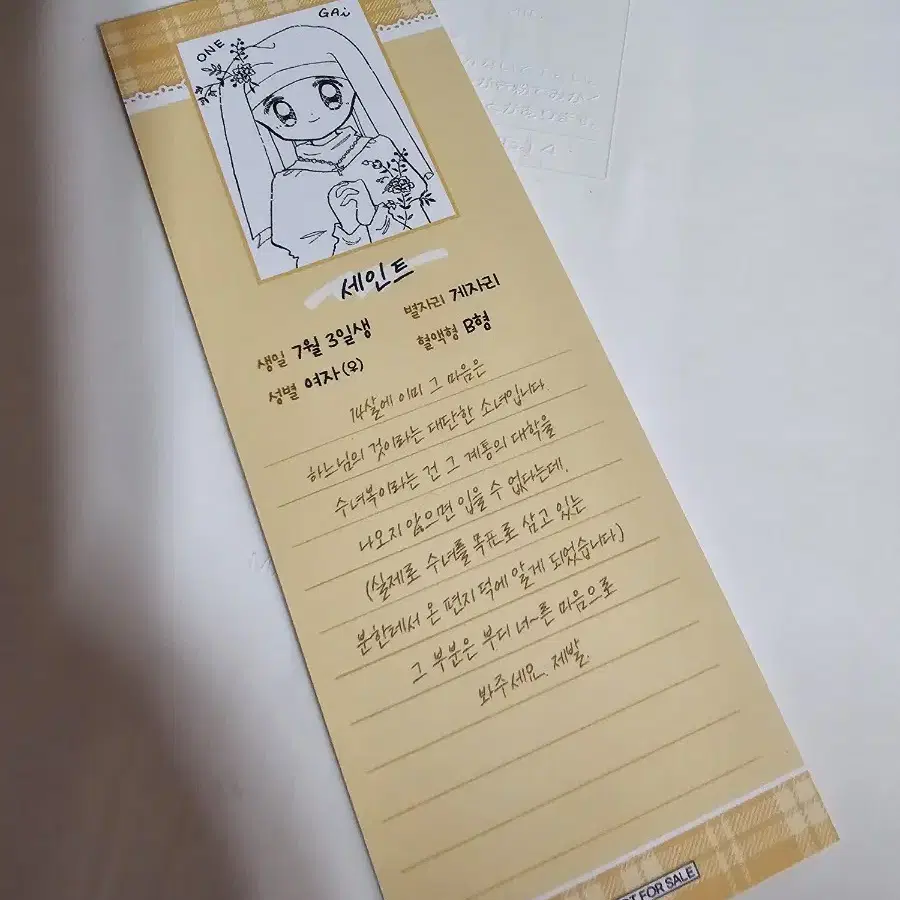 GAi
ONE
세인트
생일 7월 3일생 별자리 게자리
성별 여자(우) 혈액형 B형
14살에 이미 그 마음은
하느님의 것이라는 대단한 소녀입니다.
수녀복이라는 건 그 계통의 대학을
나오지 않으면 입을 수 없다는데.
(실제로 수녀를 목표로 삼고 있는
분한테서 온 편지 덕에 알게 되었습니다)
그 부분은 부디 너~른 마음으로
봐주세요. 제발.
FOR SALE